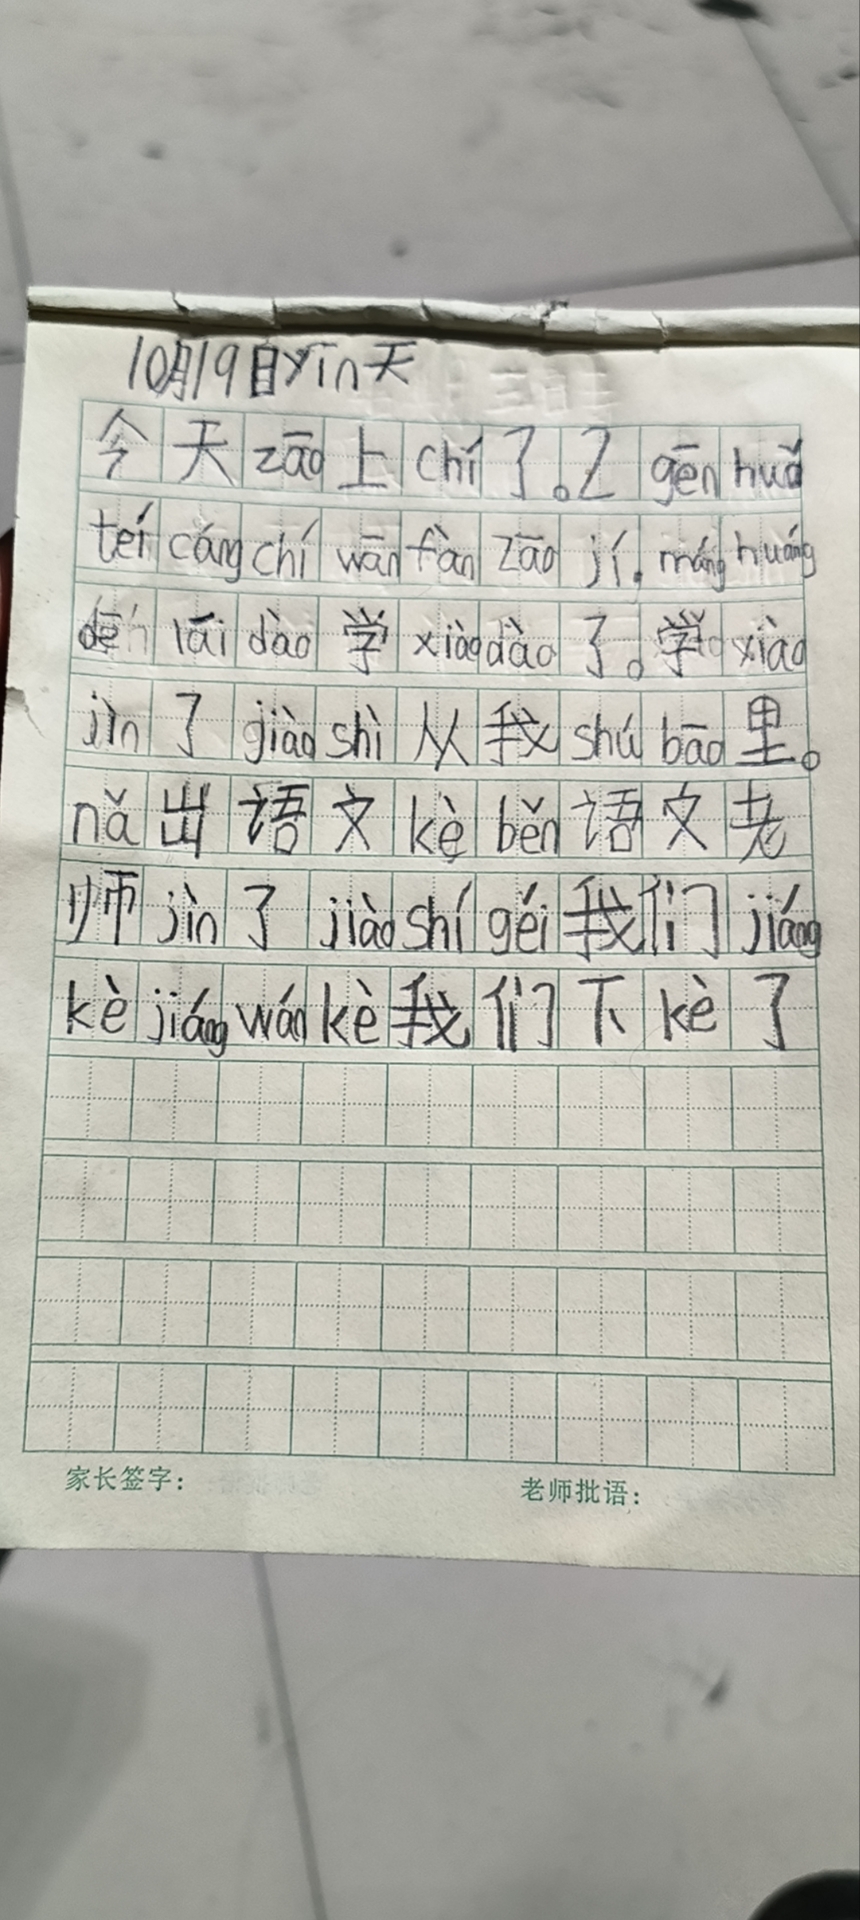 10月19日yīn天
今天zāo上chí了。2gēnhuǒ
teícángchíwānfànzāojí.mánghuáng
dēnlāidào学xiàodào了。学xiào
jìn了jiàoshì从我shúbāo里。
nǎ出语文kèběn语文老
师jìn了jiàoshígéi我们jiáng
kèjiángwánkè我们下kè了
家长签字： 老师批语：